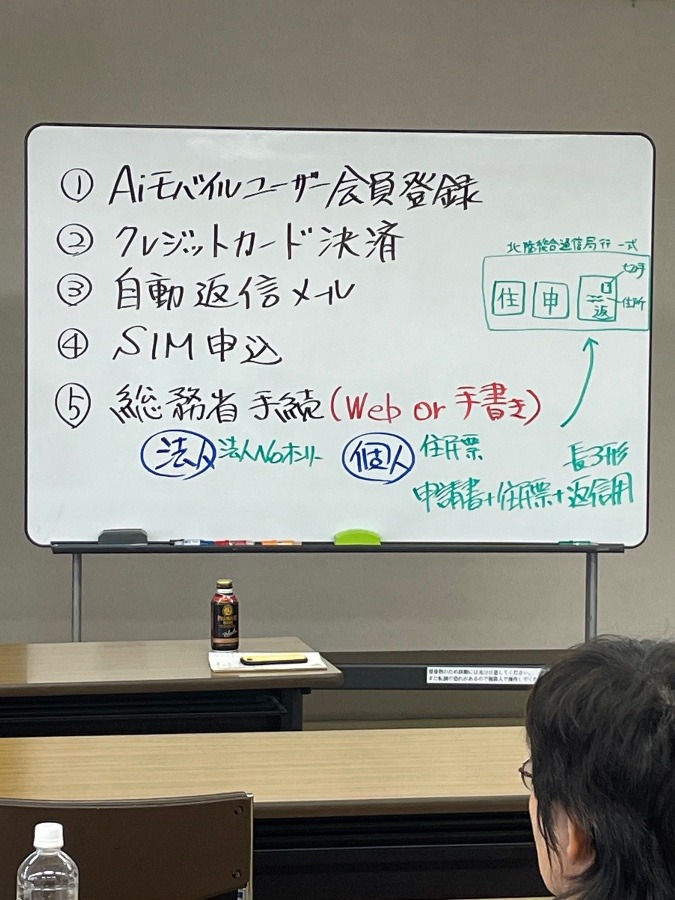 ① Aiモバイルユーザー会員登録
② クレジットカード決済
③ 自動返信メール
④ SIM申込
⑤ 総務省手続(Web or 手書き)
法人 法人Noオンリー
個人 住民票
申請書+住民票+返信用
長3形
北陸総合通信局行 一式
切手
住 申 返 住所